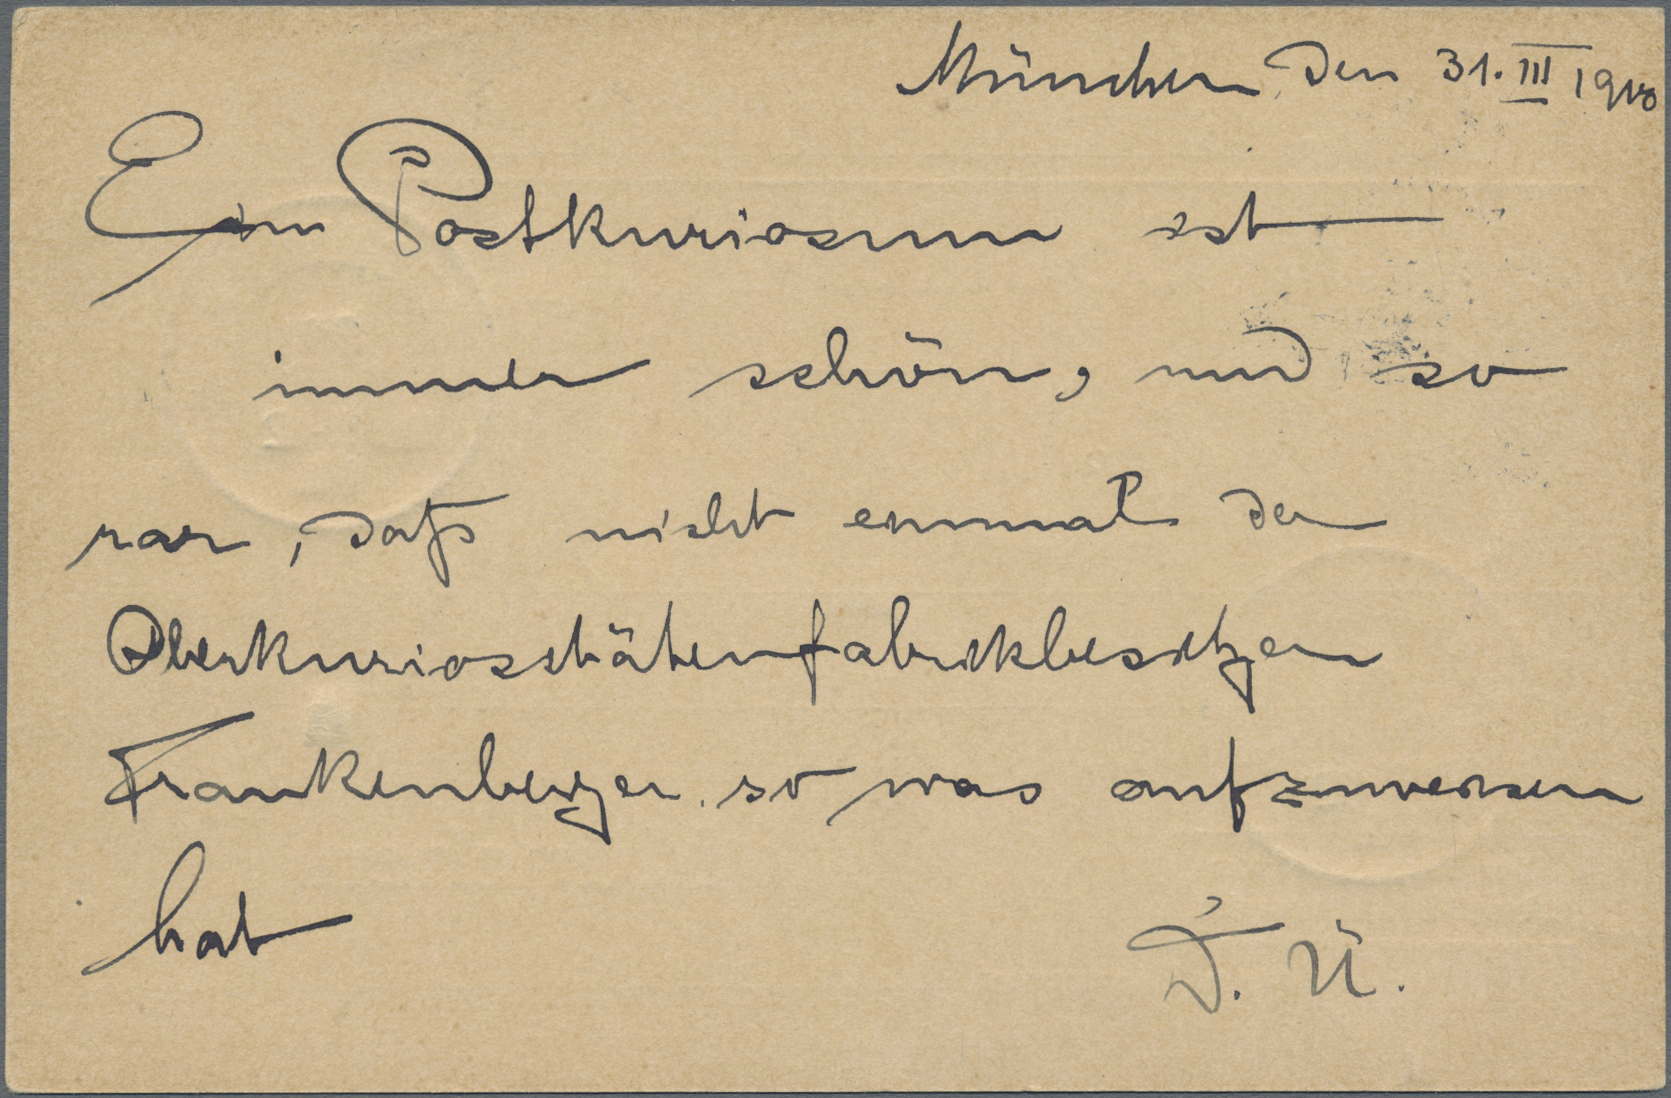 München den 31. III 1910
Ein Postkuriosum ist
immer schön, und so
rar, daß nicht einmal der
Oberkuriositätenfabrikbesitzer
Frankenberger so was aufzuweisen
hat
D. Ü.